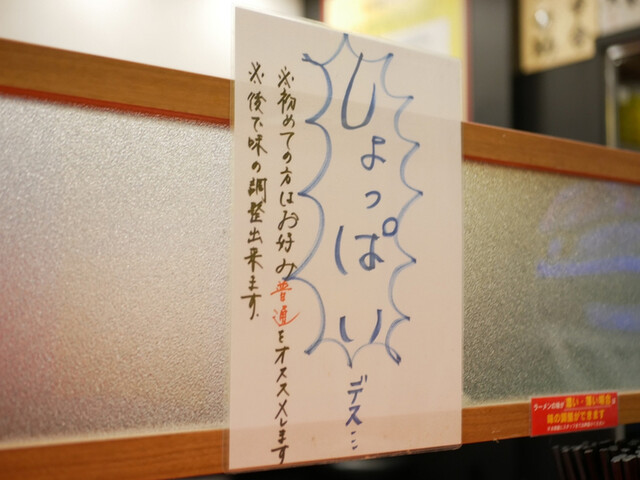 しょっぱい
デス…
※初めての方はお好み普通をオススメします
※後で味の調整出来ます。
ラーメンの味が濃い・薄い場合は
味の調整ができます